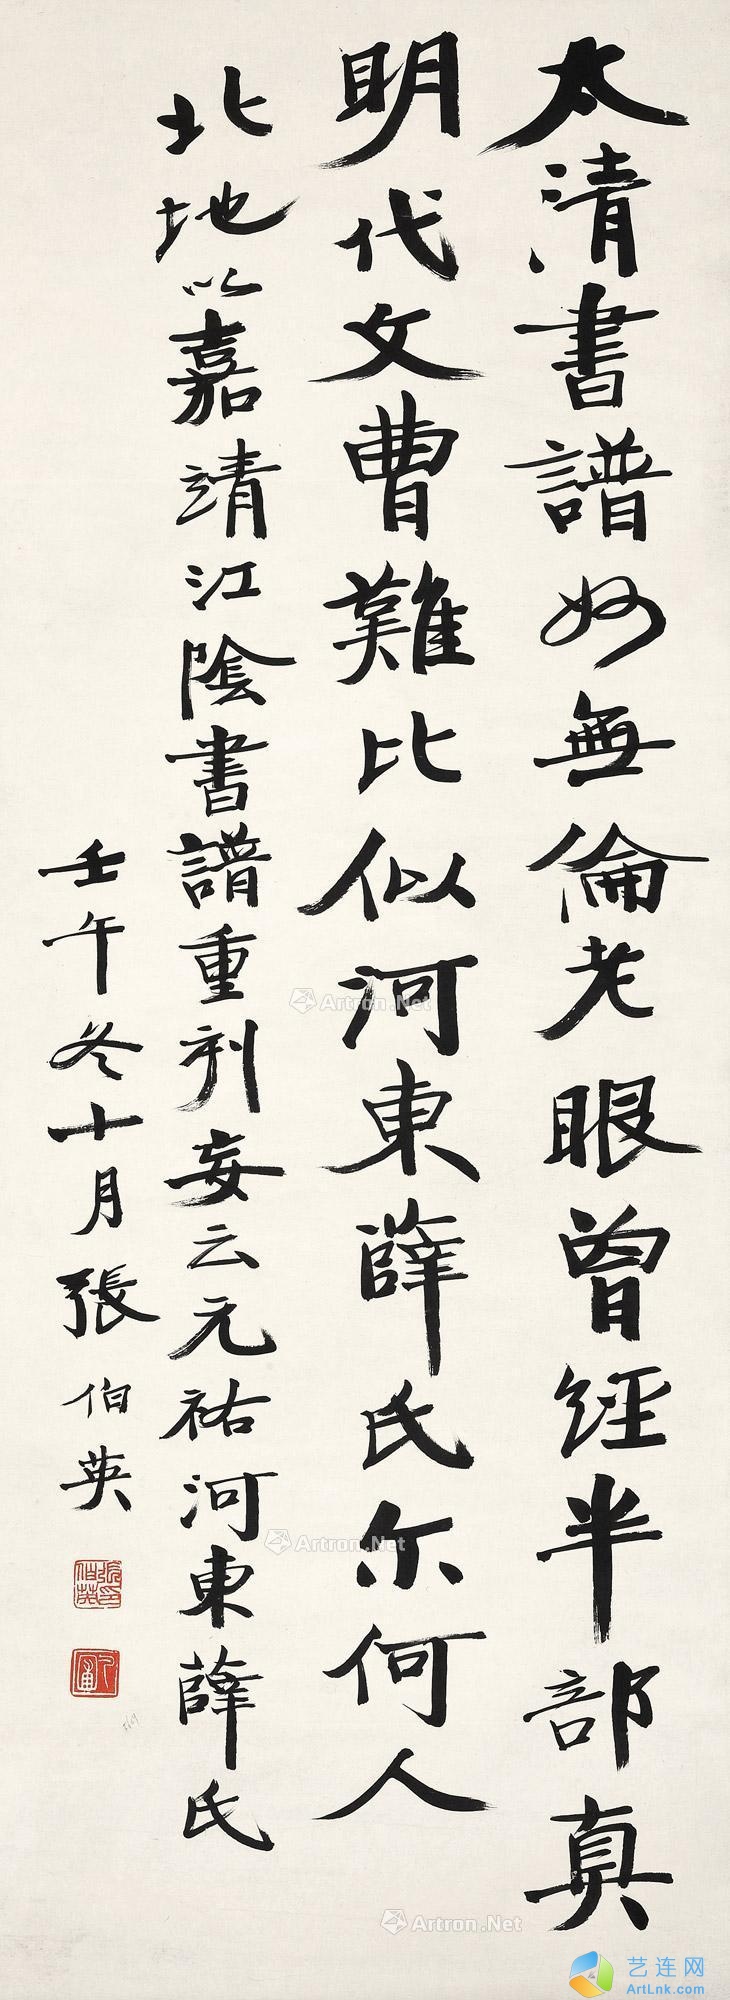 太清書譜妙無倫老眼曾經半部真
明代文曹難比似河東薛氏尓何人
北地以嘉靖江陰書譜重刋妄云元祐河東薛氏
壬午冬十月張伯英
張伯英印
Artron.Net
Artron.Net
Artron.Net
艺连网
ArtLnk.com